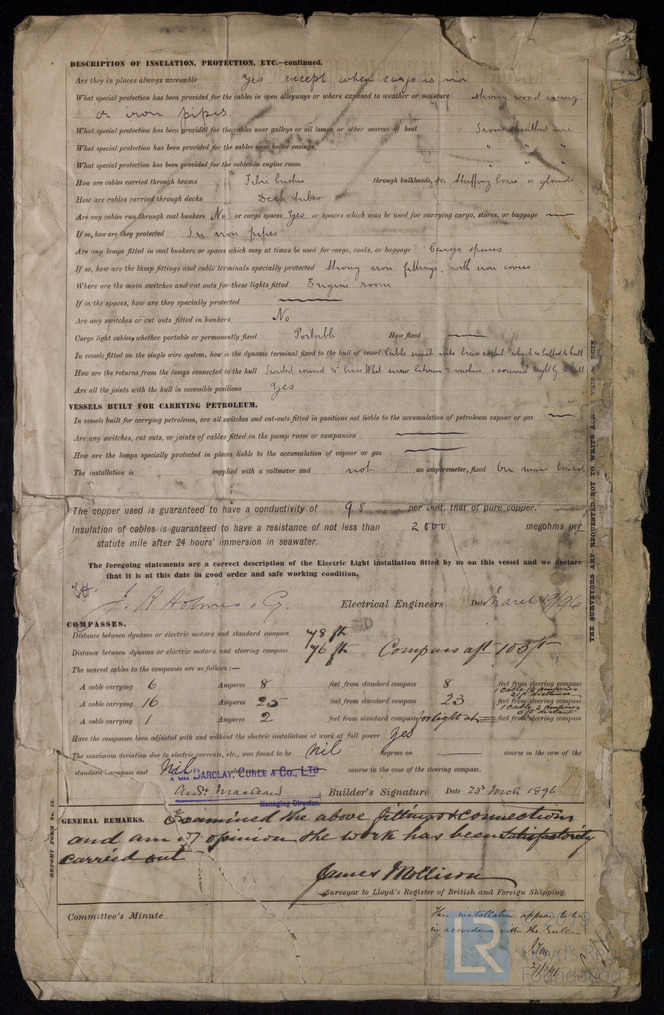 DESCRIPTION OF INSULATION, PROTECTION, ETC.—continued.
Are they in places always accessible Yes except when cargo is in
What special protection has been provided for the cables in open alleyways or where exposed to weather or moisture strong wood casing
or iron pipes
What special protection has been provided for the cables near galleys or oil lamps or other sources of heat Iron sheathed wire
What special protection has been provided for the cables near boiler casings " " "
What special protection has been provided for the cables in engine room " " "
How are cables carried through beams Fibre bushes through bulkheads, &c. Stuffing boxes or glands
How are cables carried through decks Deck tubes
Are any cables run through coal bunkers No or cargo spaces Yes or spaces which may be used for carrying cargo, stores, or baggage —
If so, how are they protected In iron pipes
Are any lamps fitted in coal bunkers or spaces which may at times be used for cargo, coals, or baggage Cargo spaces
If so, how are the lamp fittings and cable terminals specially protected Strong iron fittings, with iron covers
Where are the main switches and cut outs for these lights fitted Engine room
If in the spaces, how are they specially protected —
Are any switches or cut outs fitted in bunkers No
Cargo light cables, whether portable or permanently fixed Portable How fixed —
In vessels fitted on the single wire system, how is the dynamo terminal fixed to the hull of vessel Cable sweat into brass socket which is bolted to hull
How are the returns from the lamps connected to the hull brass screw between 2 washers & screwed tightly to hull
Are all the joints with the hull in accessible positions Yes
VESSELS BUILT FOR CARRYING PETROLEUM.
In vessels built for carrying petroleum, are all switches and cut-outs fitted in positions not liable to the accumulation of petroleum vapour or gas —
Are any switches, cut outs, or joints of cables fitted in the pump room or companion —
How are the lamps specially protected in places liable to the accumulation of vapour or gas —
The installation is supplied with a voltmeter and not an amperemeter, fixed On main board
The copper used is guaranteed to have a conductivity of 98 per cent. that of pure copper.
Insulation of cables is guaranteed to have a resistance of not less than 2000 megohms per
statute mile after 24 hours' immersion in seawater.
The foregoing statements are a correct description of the Electric Light installation fitted by us on this vessel and we declare
that it is at this date in good order and safe working condition.
J. H. Holmes & Co. Electrical Engineers Date March 19/96
COMPASSES.
Distance between dynamo or electric motors and standard compass 78 ft
Distance between dynamo or electric motors and steering compass 76 ft Compass aft 108 ft
The nearest cables to the compasses are as follows:—
A cable carrying 6 Amperes 8 feet from standard compass 8 feet from steering compass
1 Cable 12 Amperes
21 ft distant
A cable carrying 16 Amperes 25 feet from standard compass 23 feet from steering compass
1 Cable 2 Amperes
A cable carrying 1 Amperes 2 feet from standard compass for light at feet from steering compass
Have the compasses been adjusted with and without the electric installation at work at full power Yes
The maximum deviation due to electric currents, etc., was found to be Nil degrees on — course in the case of the
standard compass and Nil course in the case of the steering compass.
BARCLAY, CURLE & CO., LTD
Andw Maclean Builder's Signature Date 23rd March 1896
Managing Director.
GENERAL REMARKS. Examined the above fittings & connections
and am of opinion the work has been satisfactorily
carried out
James Mollison
Surveyor to Lloyd's Register of British and Foreign Shipping.
Committee's Minute
This installation appears to be
in accordance with the Rules
REPORT FORM No. 13.
THE SURVEYORS ARE REQUESTED NOT TO WRITE
LR
Lloyd's Register
Foundation